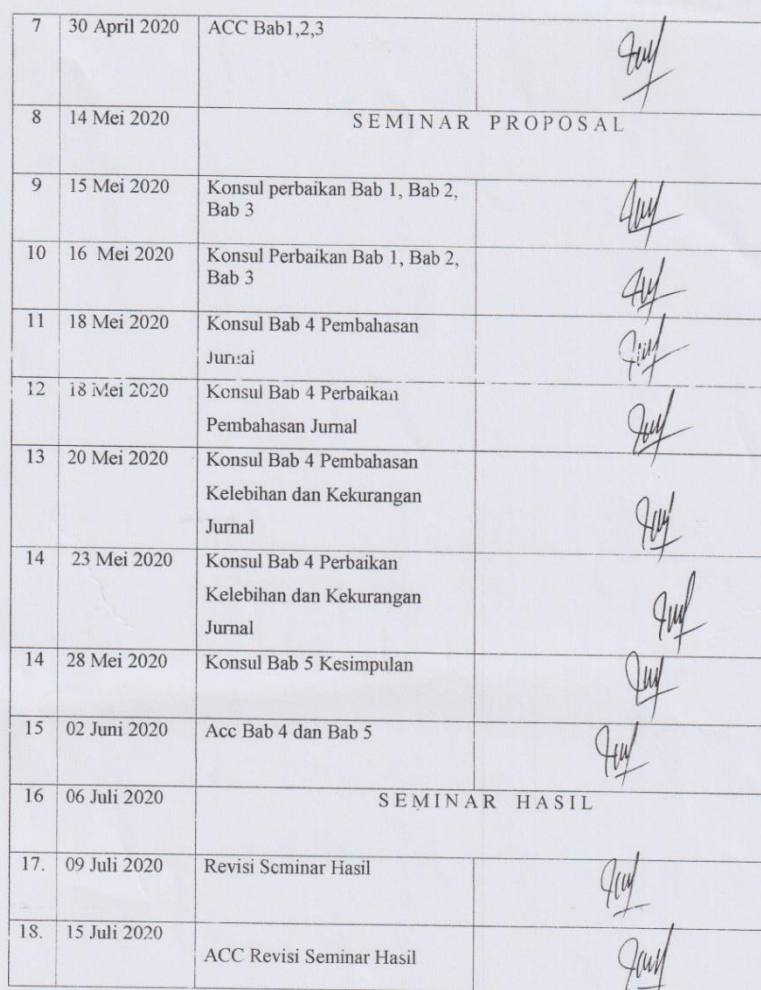 7 30 April 2020 ACC Bab1,2,3
8 14 Mei 2020 SEMINAR PROPOSAL
9 15 Mei 2020 Konsul perbaikan Bab 1, Bab 2,
Bab 3
10 16 Mei 2020 Konsul Perbaikan Bab 1, Bab 2,
Bab 3
11 18 Mei 2020 Konsul Bab 4 Pembahasan
Jurnal
12 18 Mei 2020 Konsul Bab 4 Perbaikan
Pembahasan Jurnal
13 20 Mei 2020 Konsul Bab 4 Pembahasan
Kelebihan dan Kekurangan
Jurnal
14 23 Mei 2020 Konsul Bab 4 Perbaikan
Kelebihan dan Kekurangan
Jurnal
14 28 Mei 2020 Konsul Bab 5 Kesimpulan
15 02 Juni 2020 Acc Bab 4 dan Bab 5
16 06 Juli 2020 SEMINAR HASIL
17. 09 Juli 2020 Revisi Seminar Hasil
18. 15 Juli 2020
ACC Revisi Seminar Hasil